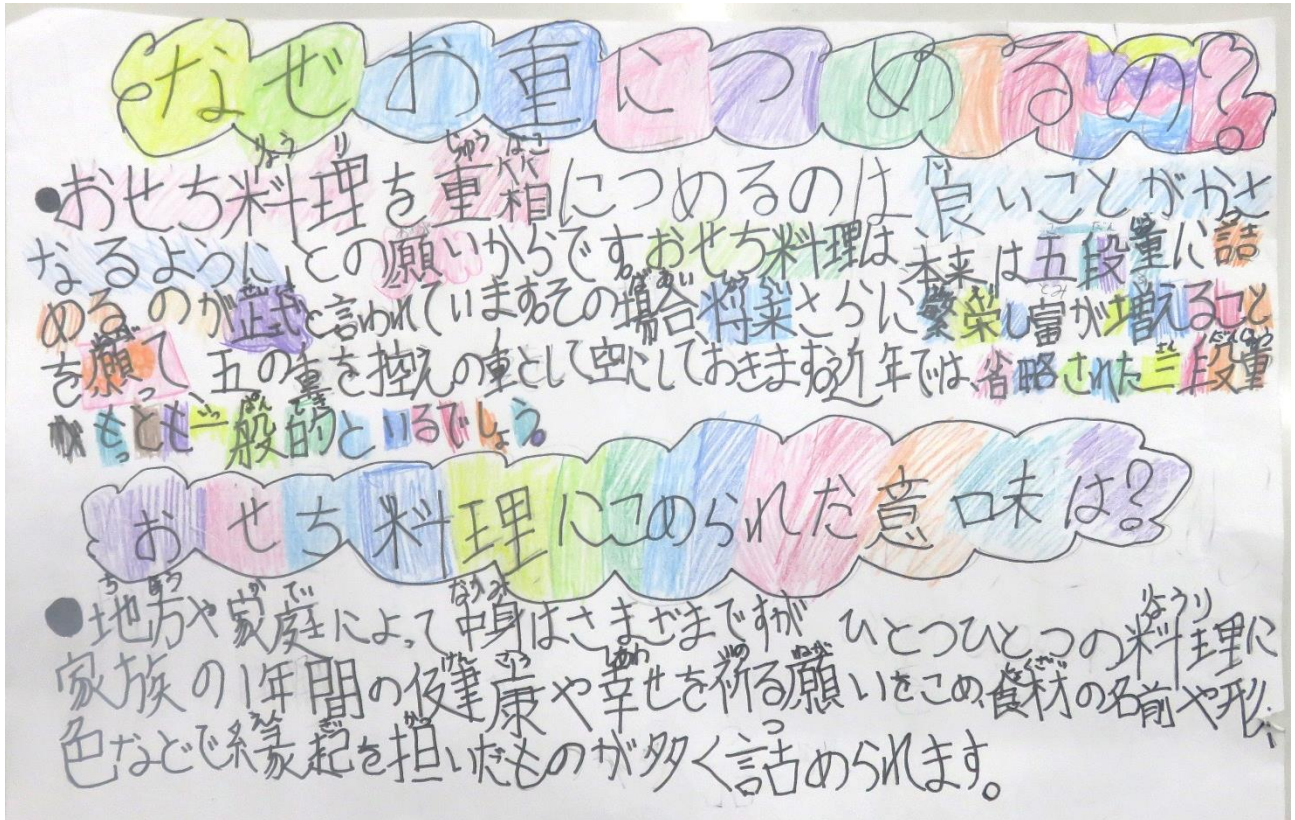 なぜお重につめるの?
●おせち料理を重箱につめるのは良いことがかさ
なるようにとの願いからです。おせち料理は、本来は五段重に詰
めるのが正式と言われています。その場合将来さらに繁栄し富が増えること
を願って、五の重を控えの重として空にしておきます。近年では、省略された三段重
がもっとも一般的といるでしょう。
おせち料理にこめられた意味は?
●地方や家庭によって中身はさまざまですが ひとつひとつの料理に
家族の1年間の健康や幸せを祈る願いをこめ、食材の名前や形、
色などで縁起を担いだものが多く詰められます。